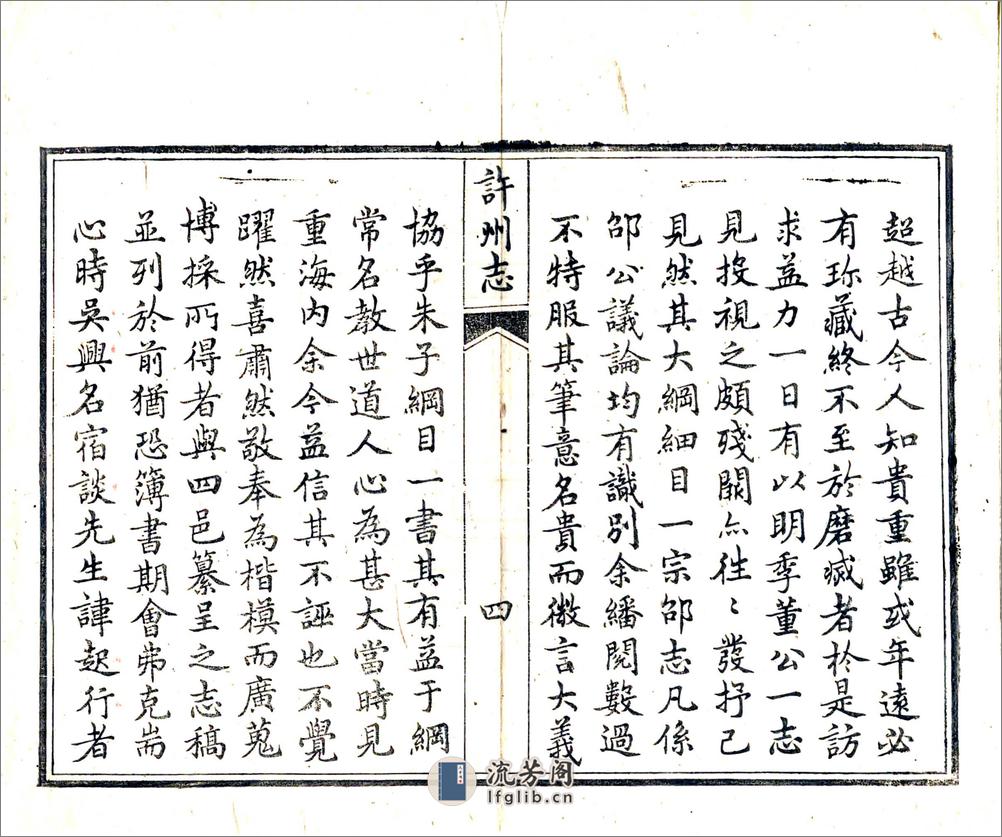 超越古今人知貴重雖或年遠必
有珎藏終不至於磨滅者於是訪
求益力一日有以明季董公一志
見投視之頗殘闕亦徃〻發抒己
見然其大綱細目一宗邵志凡係
邵公議論均有識別余繙閱數過
不特服其筆意名貴而微言大義
許州志
四
協乎朱子綱目一書其有益于綱
常名教世道人心為甚大當時見
重海内余今益信其不誣也不覺
躍然喜肅然敬奉為楷模而廣蒐
博採所得者與四邑纂呈之志稿
並列於前猶恐簿書期會弗克耑
心時吳興名宿談先生諱起行者
流芳阁
lfglib.cn